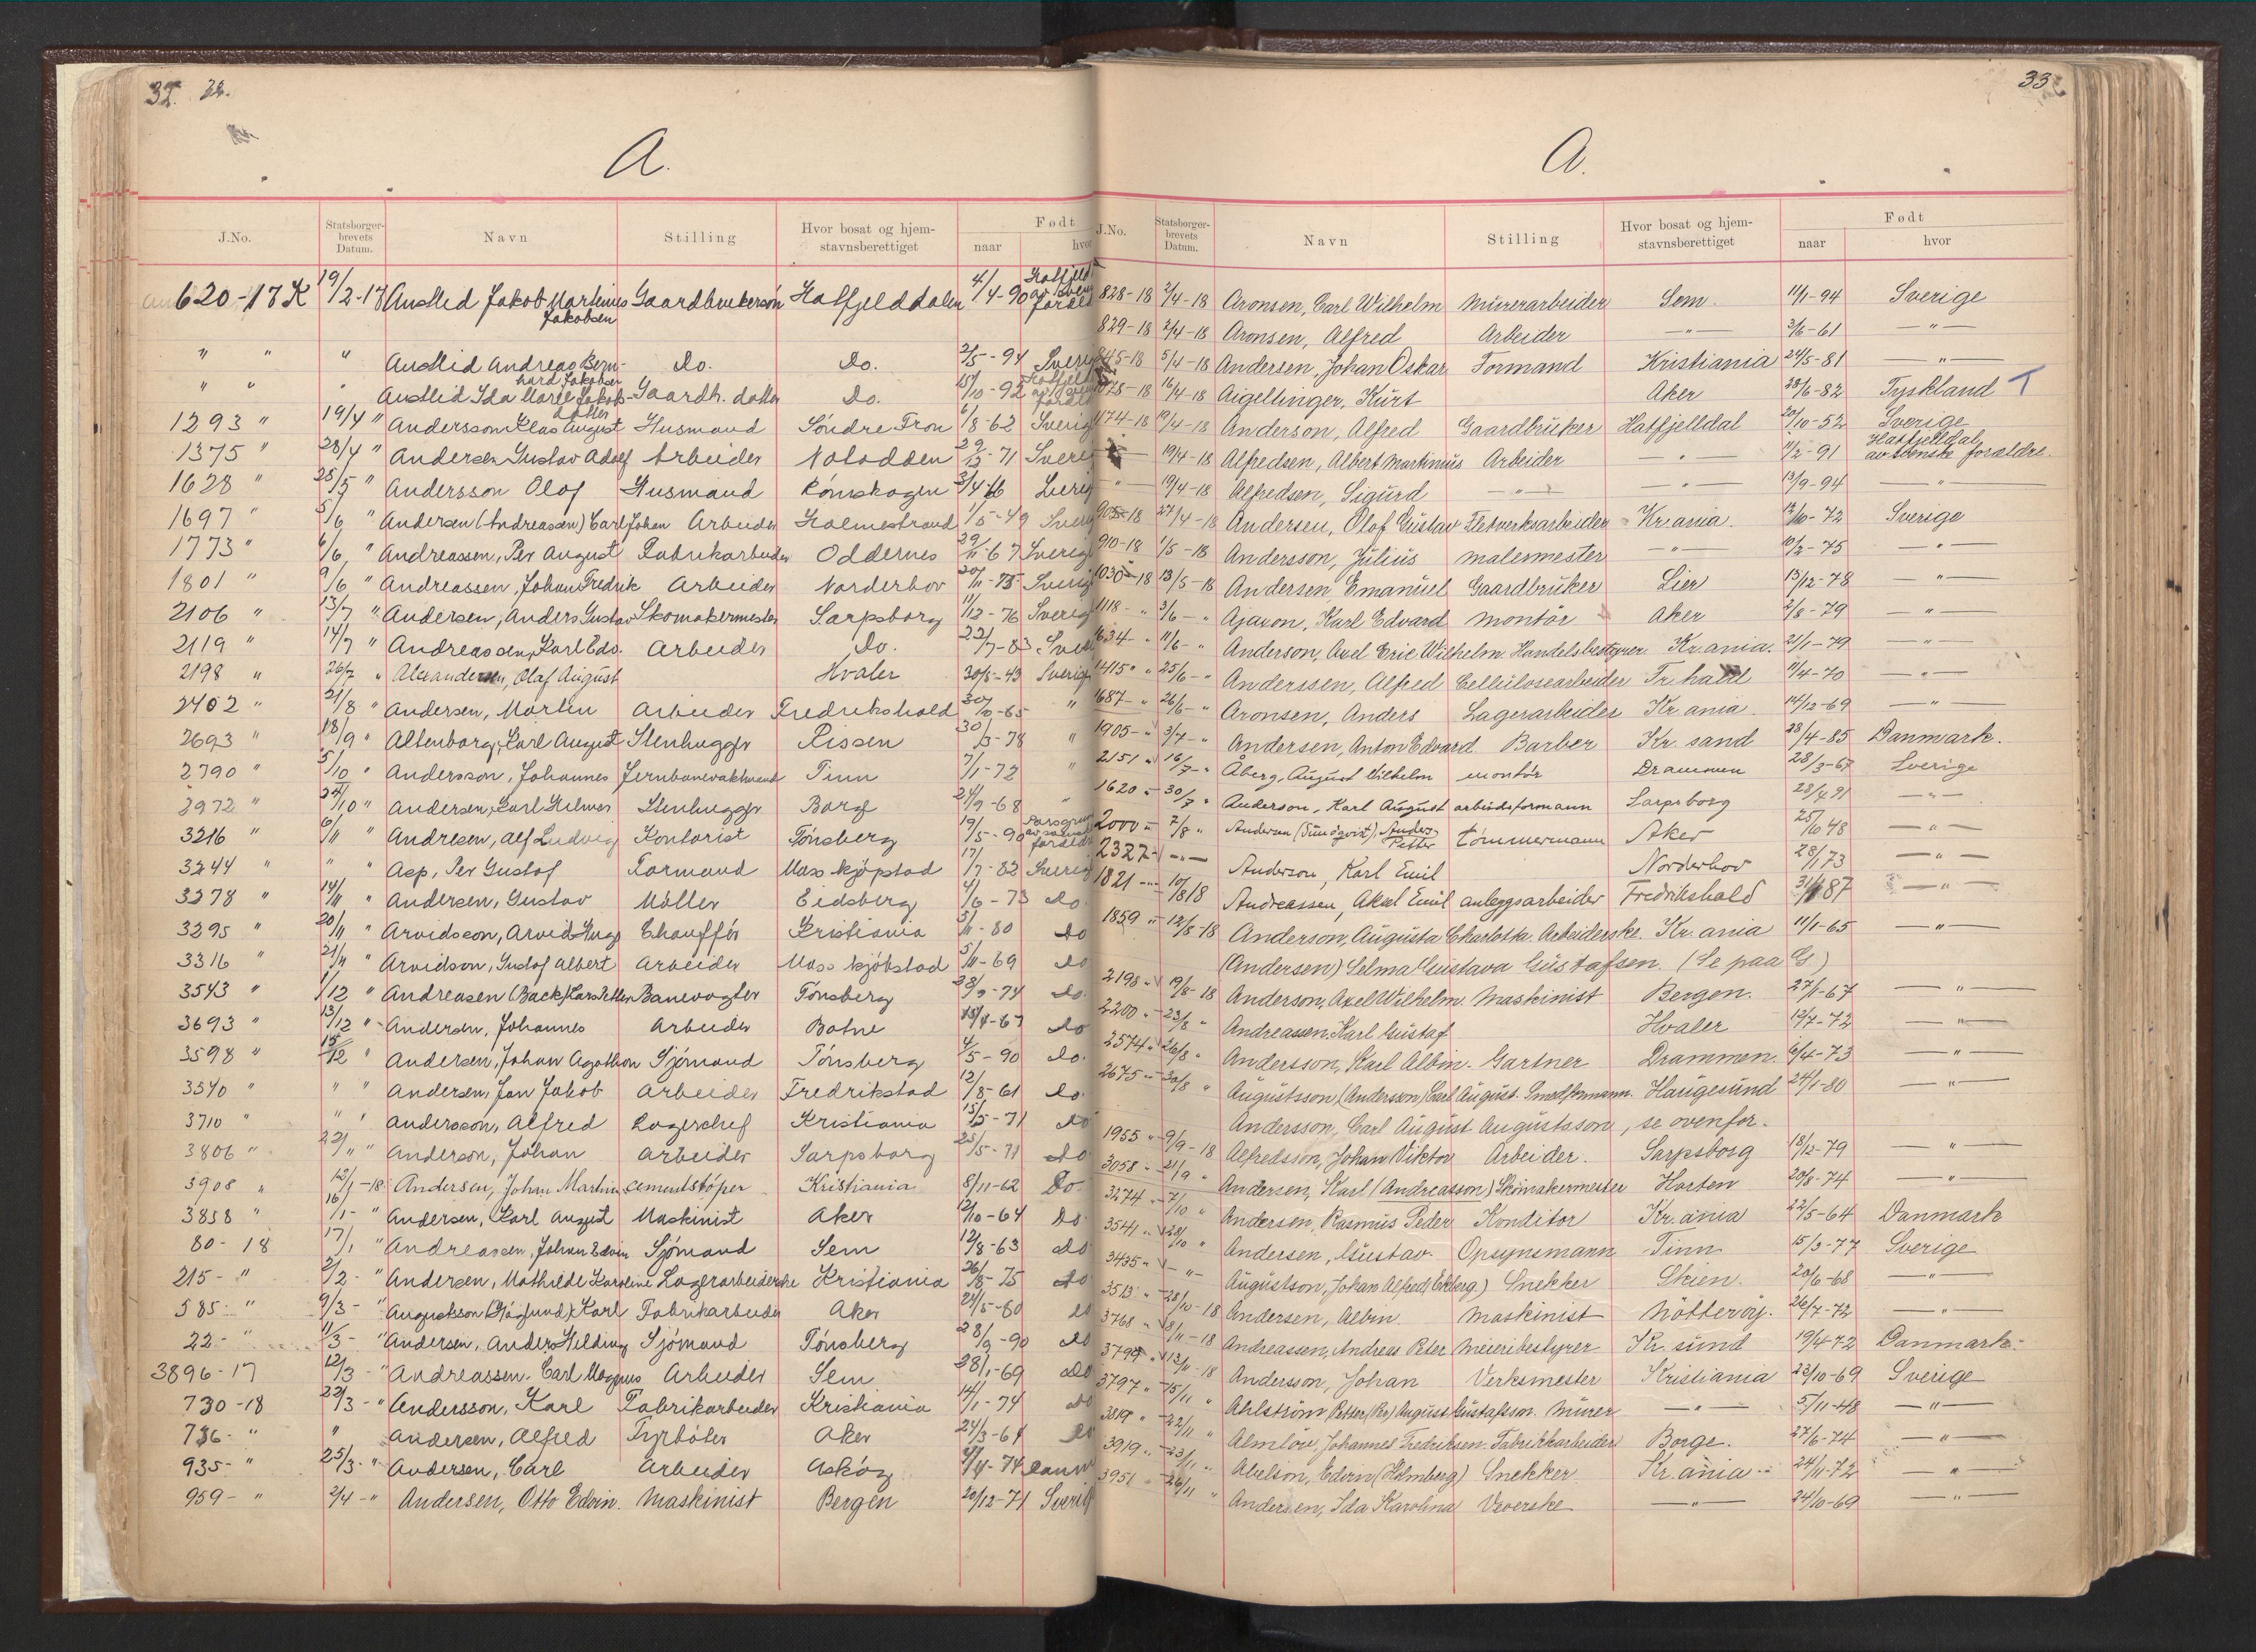 32. 32.
A.
J.No. Statsborger-brevets Datum. Navn Stilling Hvor bosat og hjem-stavnsberettiget Født naar hvor
620-17 K 19/2-17 Austlid Jakob Martinus Jakobsen Gaardbrukersön Hatfjelddalen 4/4-90
" " " Austlid Andreas Bernhard Jakobsen Do. Do. 2/5-94 Sverig
" " " Austlid Ida Marie Jakobsdatter Gaardb. datter Do. 15/10-92
1293 " 19/4 " Andersson Klas August Husmand Söndre Fron 6/8-62 Sverig
1375 " 28/4 " Andersen Gustav Adolf Arbeider Notodden 29/12-71 Sverig
1628 " 25/5 " Andersson Olof Husmand Römskogen Sverig
1697 " 5/6 " Andersen (Andreassen) Carl Johan Arbeider Holmestrand 1/5-49 Sverig
1773 " 6/6 " Andreassen, Per August Fabrikarbeider Oddernes 29/11-67 Sverig
1801 " 9/6 " Andreassen, Johan Fredrik Arbeider Norderhov 20/11-75 Sverig
2106 " 13/7 " Andersen, Anders Gustav Skomakermester Sarpsborg 11/12-76 Sverig
2119 " 14/7 " Andreassen, Karl Edv. Arbeider Do. 22/7-83 Sver
2198 " 26/7 " Alexandersen, Olaf August Hvaler 30/5-49 Sverig
2402 " 21/8 " Andersen, Martin Arbeider Fredrikshald 30/10-65 "
2693 " 18/9 " Altenborg, Karl August Stenhugger Rissen 30/3-78 "
2790 " 5/10 " Andersson, Johannes Jernbanevaktmand Tinn 7/1-72 "
2972 " 24/10 " Andersen, Karl Hilmer Stenhugger Borge 24/9-68 "
3216 " 6/11 " Andresen, Alf Ludvig Kontorist Tönsberg 19/5-90
3244 " " " Asp, Per Gustaf Formand Moss kjöpstad 17/7-82 Sverig
3278 " 14/11 " Andersen, Gustav Möller Eidsberg 4/6-73 do.
3295 " 20/11 " Arvidsson, Arvid Hugo Chaufför Kristiania 5/11-80 do
3316 " 21/11 " Arvidson, Gustaf Albert Arbeider Moss kjöbstad 5/11-69 do
3543 " 1/12 " Andreasen (Back) Lars Petter Banevogter Tönsberg 28/9-74 do.
3693 " 13/12 " Andersen, Johannes Arbeider Botne do
3598 " 15/12 " Andersen, Johan Agathon Sjömand Tönsberg 4/5-90 do.
3540 " " " Andersen, Jan Jakob Arbeider Fredrikstad 12/8-61 do.
3710 " " " Andersson, Alfred Lagerchef Kristiania 15/5-71 do
3806 " 22/" " Anderson, Johan Arbeider Sarpsborg 25/5-71 do
3908 " 12/1-18 Andersen, Johan Martin Cementstöper Kristiania 8/11-62 Do.
3858 " 16/1- " Andersen, Karl August Maskinist Aker 2/10-64 do
80-18 17/1 " Andreassen, Johan Edvin Sjömand Sem 12/8-63 do
215- " 2/2- " Andersen, Mathilde Karoline Lagerarbeiderske Kristiania 26/8-75 do
585- " 9/3- " Augustsson Karl Fabrikarbeider Aker 24/5-80 do
22- " 11/3- " Andersen, Anders Helding Sjömand Tönsberg 28/9-90 do
3896-17 12/3- " Andreassen, Carl Magnus Arbeider Sem 28/1-69 do
730-18 22/3- " Andersson, Karl Fabrikarbeider Kristiania 14/1-74 do
736- " " Andersen, Alfred Fyrböter Aker 24/3-64 do
935- " 25/3- " Andersen, Carl Arbeider Asköy Danm
959- " 2/4- " Andersen, Otto Edvin. Maskinist Bergen 20/12-71 Sverig
33
A.
J.No. Statsborger-brevets Datum. Navn Stilling Hvor bosat og hjem-stavnsberettiget Født naar hvor
828-18 2/4-18 Aronsen, Carl Wilhelm Mürerarbeider Sem. 11/1-94 Sverige
829-18 2/4-18 Aronsen, Alfred Arbeider — " — 3/6-61 — " —
845-18 5/4-18 Andersen, Johan Oskar Formand Kristiania 24/5-81 — " —
1078-18 16/4-18 Aigeltinger, Kürt Aker 28/6-82 Tyskland T
474-18 19/4-18 Anderson, Alfred Gaardbrüker Hatfjelldal 20/10-52 Sverige
— " — 19/4-18 Alfredsen, Albert Martinius Arbeider — " — 11/2-91 Hatfjelldal, av svenske forældre.
— " — 19/4-18 Alfredsen, Sigürd — " — — " — 13/9-94 — " —
905-18 27/4-18 Andersen, Olof Güstav Flekverksarbeider Kr.ania. 12/10-72 Sverige
910-18 1/5-18 Andersson, Jülius Malermester — " — 10/2-75 — " —
1030-18 13/5-18 Andersen, Emanüel Gaardbrüker Lier 13/12-78 — " —
1118- " 3/6- " Ajaxon, Karl Edvard Montör Aker 2/8-79 — " —
1634- " 11/6- " Anderson, Axel Eric Wilhelm Handelsbestyrer Kr.ania. 21/1-79 — " —
1415 " 25/6- " Anderssen, Alfred Cellülosearbeider Fr.hald 11/4-70 — " —
1687- " 26/6- " Aronsen, Anders Lagerarbeider Kr ania 14/12-69 — " —
1905- " 3/7- " Andersen, Anton Edvard. Barber Kr. sand 28/4-85 Danmark.
2151 " 16/7- " Åberg, August Vilhelm montör Drammen 28/3-67 Sverige
1620 - 30/7 " Anderson, Karl August arbeidsformann Sarpsborg 28/4 91 — " —
2000 - 7/8 " Andersen (Sundqvist), Anders Petter Tömmermann Aker 25/10 48 — " —
2327 - — " — Anderson, Karl Emil Norderhov 28/1 73 — " —
1821 - 10/8 18 Andreassen, Aksel Emil anleggsarbeider Fredrikshald 87 — " —
1859 - 12/8-18 Anderson, Augusta Charlotta. Arbeiderske. Kr. ania 11/1-65 — " —
(Andersen) Selma Güstava Güstafsen. (Se paa G)
2198 - 19/8-18 Anderson, Axel Wilhelm. Maskinist Bergen. 27/1-67 — " —
2200 - 23/8 " Andreassen, Karl Güstaf Hvaler 12/7-72 — " —
2574 " 26/8 " Andersson, Karl Albin. Gartner Drammen. 6/4-73 — " —
2675 - 30/8 " Augüstsson, (Andersson) Carl Aügust. Smedformann. Haügesünd 24/1-80 — " —
Andersson, Carl August Augüstsson, se ovenfor.
1955 " 9/9-18 Alfredsson, Johan Viktor Arbeider. Sarpsborg 18/12-79 — " —
3058 - 21/9 " Andersen, Karl (Andreasson) Skömakermester Horten 20/8-74 — " —
3274 - 7/10 " Andersen, Rasmüs Peder Konditor Kr.ania 22/5-64 Danmark
3541 - 28/10 " Andersen, Güstav. Opsynsmann Tinn 15/3-77 Sverige
3435 " — " — Augüstson, Johan Alfred (Ekberg.) Snekker Skien. 20/6-68 — " —
3513 " 28/10-18 Andersen, Albin. Maskinist Nötteröy. 26/7-72 — " —
3768 " 8/11-18 Andreassen, Andreas Peter Meieribestyrer Kr. sünd 19/4-72 Danmark.
3798 " 13/11-18 Andersson, Johan Verksmester Kristiania 23/10-69 Sverige
3797 " 15/11 " Ahlström Petter (Per) Augüst Güstafsson. Mürer — " — 5/11-48 — " —
3819 " 22/11 " Almlöv, Johannes Fredriksen Fabrikkarbeider Borge. 27/6-74 — " —
3919 " 23/11 " Abelson, Edvin (Holmberg) Snekker Kr.ania 24/11-72 — " —
3951 " 26/11 " Andersen, Ida Karolina Væverske — " — 24/10-69 — " —